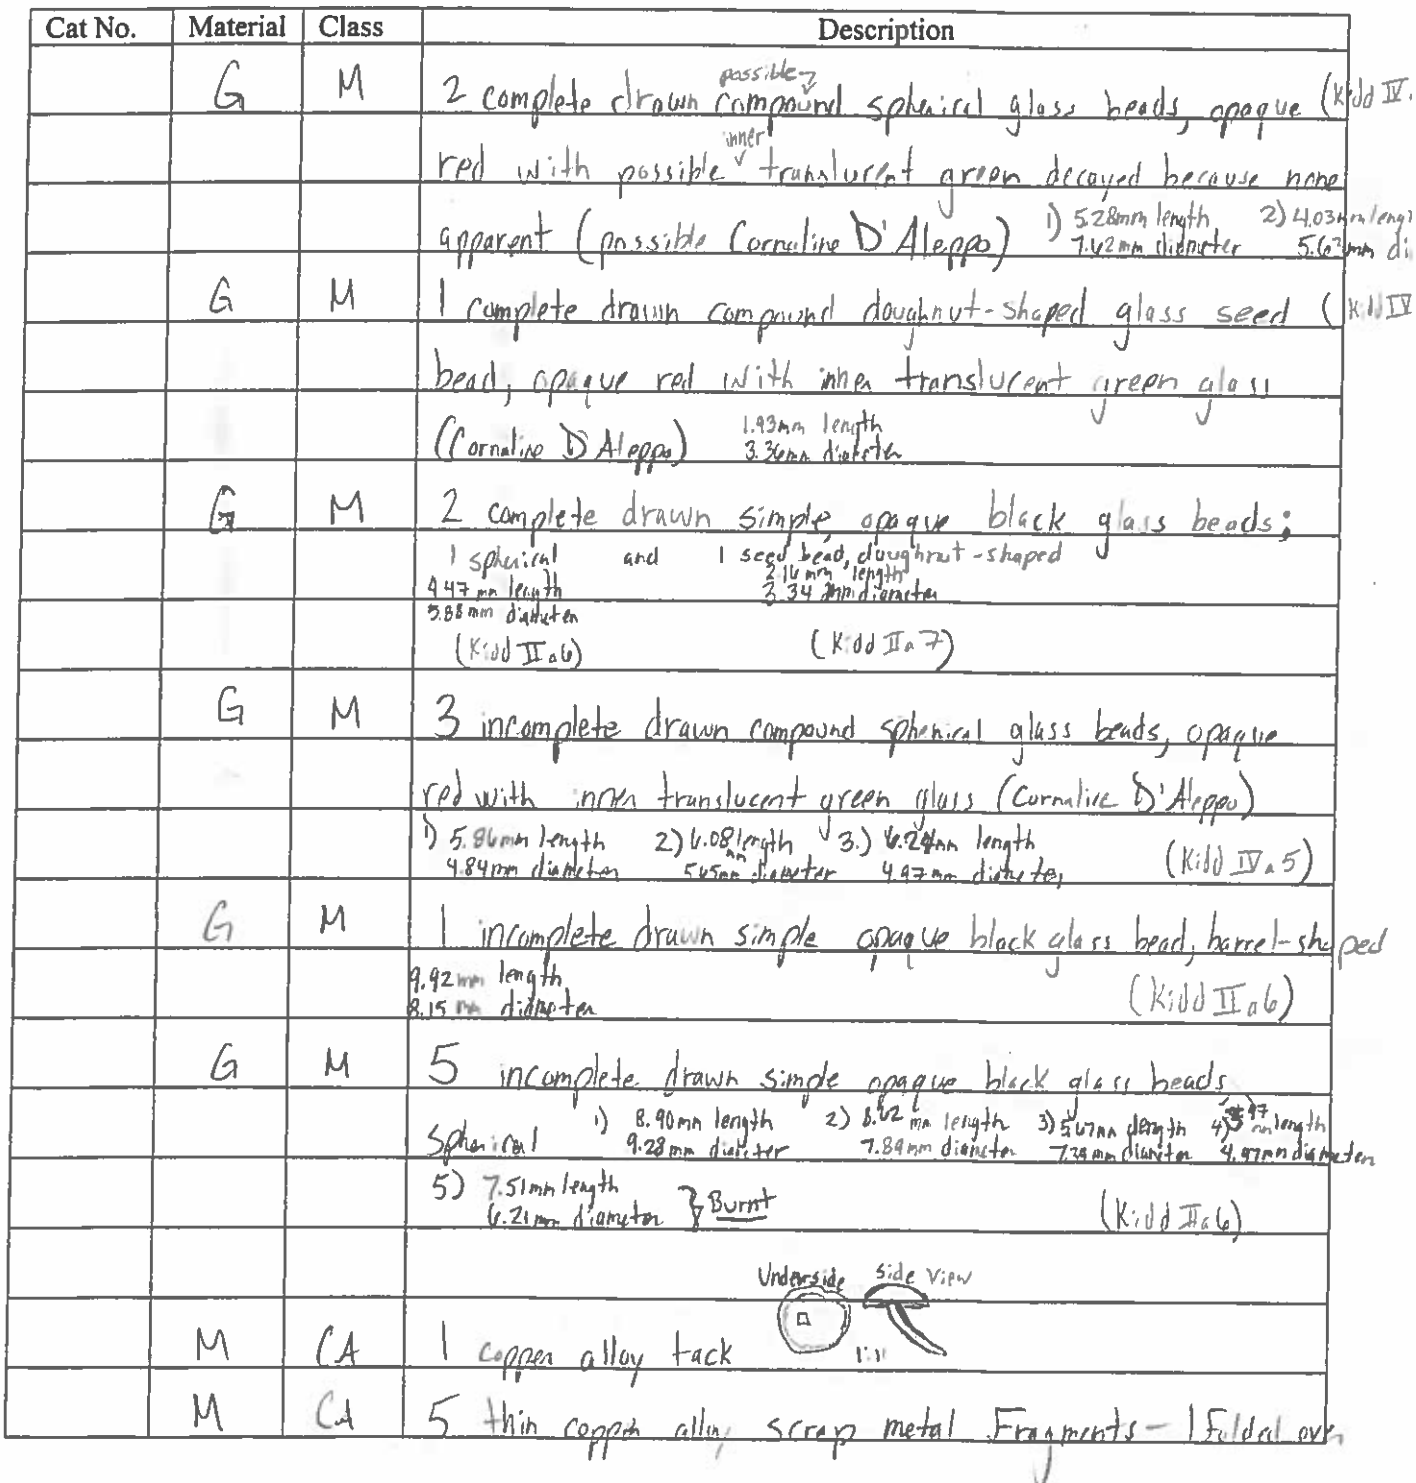 Cat No. Material Class Description
possible
G M 2 complete drawn compound spherical glass beads, opaque (Kidd IV.
inner
red with possible translucent green decayed because none
apparent (possible Cornaline D'Aleppo) 1) 5.28mm length 2) 4.03mm leng
7.62mm diameter 5.62mm di
G M 1 complete drawn compound doughnut-shaped glass seed (Kidd IV
bead, opaque red with inner translucent green glass
(Cornaline D'Aleppo) 1.93mm length
3.36mm diameter
G M 2 complete drawn simple, opaque black glass beads;
1 spherical and 1 seed bead, doughnut-shaped
4.47 mm length 2.16 mm length
5.88 mm diameter 3.34 mm diameter
(Kidd IIa6) (Kidd IIa7)
G M 3 incomplete drawn compound spherical glass beads, opaque
red with inner translucent green glass (Cornaline D'Aleppo)
1) 5.86mm length 2) 6.08mm length 3.) 6.24mm length
4.84mm diameter 5.65mm diameter 4.97mm diameter (Kidd IVa5)
G M 1 incomplete drawn simple opaque black glass bead, barrel-shaped
9.92mm length
8.15 mm diameter (Kidd IIa6)
G M 5 incomplete drawn simple opaque black glass beads,
spherical 1) 8.90mm length 2) 8.62 mm length 3) 5.67mm length 4) mm length
9.28mm diameter 7.89mm diameter 7.79mm diameter 4.97mm diameter
5) 7.51mm length
6.21mm diameter } Burnt (Kidd IIa6)
Underside Side View
M CA 1 copper alloy tack 1:1
M CA 5 thin copper alloy scrap metal Fragments - 1 Folded over